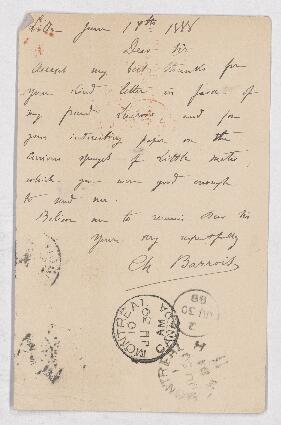 Lille June 18th 1888
Dear Sir
Accept my best thanks for
your kind letter in favor of
my friend and for
your interesting paper on the
curious sponges of Little Métis
which you were good enough
to send me.
Believe me to remain dear Sir
Yours very respectfully
Ch Barrois
MONTREAL
CANADA
10 AM
JU 30
88
2
MONTREAL